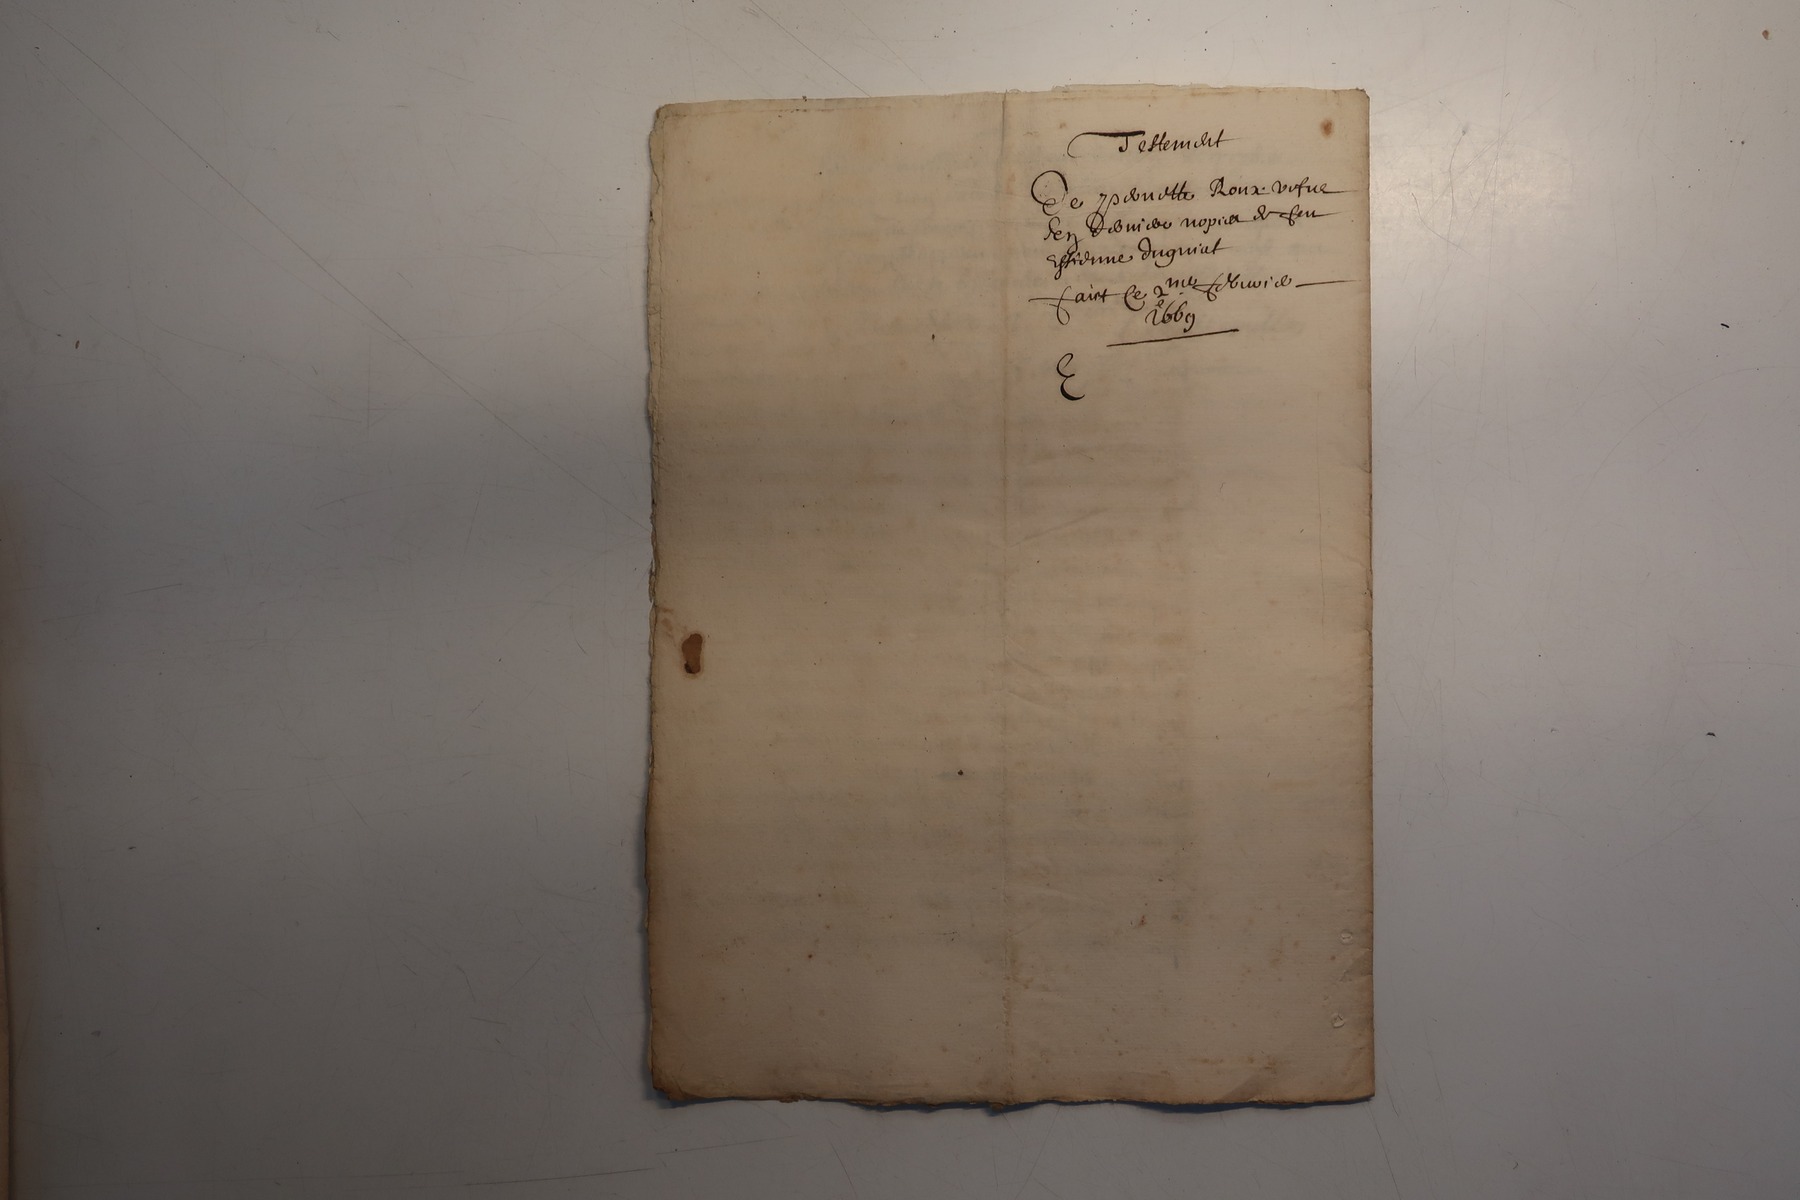 Testement
De pernette Roux vefue
en dernier nopces de feu
estienne dugniat
faict ce 2me febvrier
1669
E